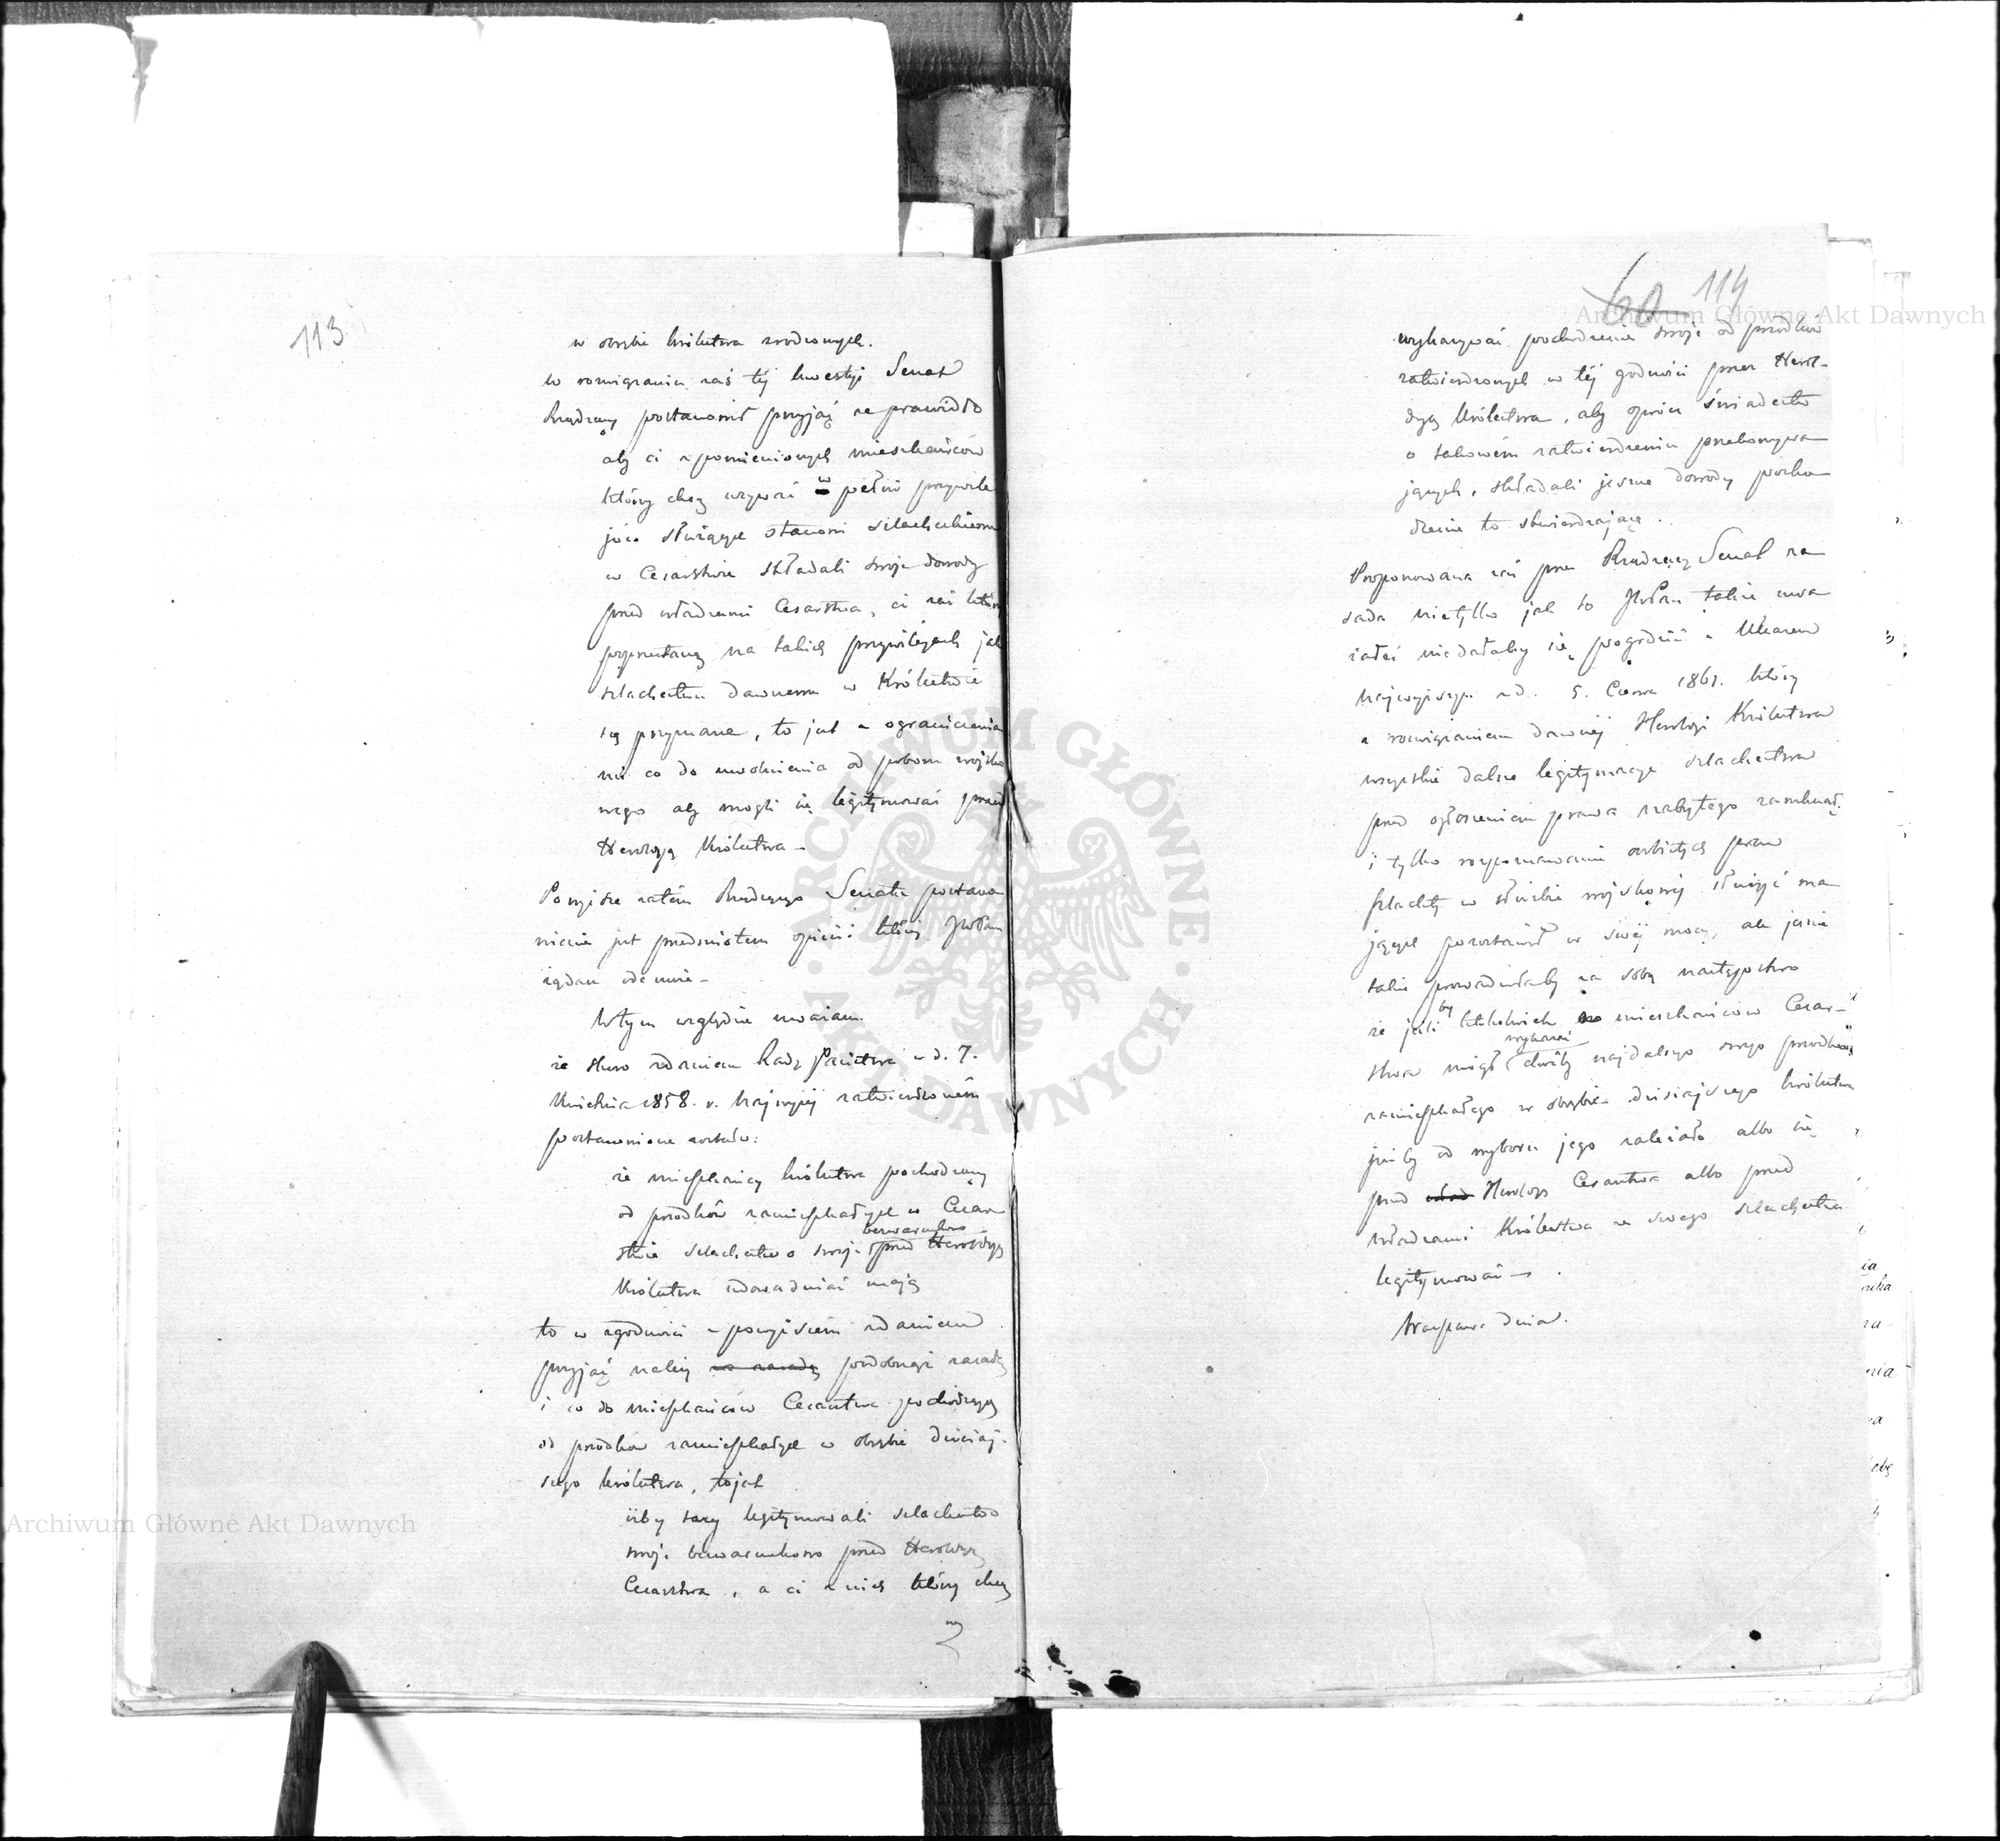 113
w obrębie Królestwa zrodzonych.
W rozwiązaniu zaś téj kwestyi Senat
Rządzący postanowił przyjąć za prawidło
aby ci z pomienionych mieszkańców
którzy chcą używać w pełni przywile
jów służących stanowi szlacheckiemu
w Cesarstwie składali swoje dowody
przed władzami Cesarstwa, ci zaś którzy
poprzestaną na takich przywilejach jak
szlachectwu dawnemu w Królestwie
są przyznane, to jest z ograniczenia
mi co do uwolnienia od poboru wojsko
wego aby mogli się legitymować przed
Heroldyą Królestwa –
Powyższe zatém Rządzącego Senatu postano
wienie jest przedmiotem opinii której JWPan
żądasz ode mnie –
W tym względzie uważam.
że skoro zdaniem Rady Państwa z d. 7.
Kwietnia 1858. r. Najwyżéj zatwierdzoném
postanowione zostało:
że mieszkańcy Królestwa pochodzący
od przodków zamieszkałych w Cesar
bezwarunkowo
stwie szlachectwo swoje przed Heroldyą
Królestwa udowadniać mają
to w zgodności z powyższém zdaniem
przyjąć należy na zasadę podobnąż zasadę
i co do mieszkańców Cesarstwa pochodzących
od przodków zamieszkałych w obrębie dzisiaj-
szego Królestwa, to jest
iżby szlachectwo legitymowali
swoje bezwarunkowo przed Heroldyą
Cesarstwa, a ci z nich którzy chcą
60 114
wykazywać pochodzenie swoje od przodków
zatwierdzonych w téj godności przez Herol-
dyą Królestwa, aby oprócz świadectw
o takowém zatwierdzeniu przekonywa
jących, składali jeszcze dowody pocho
dzenie to stwierdzające.
Proponowana zaś przez Rządzący Senat za
sada nietylko jak to JWPan także uwa
żałeś niedałaby się pogodzić z Ukazem
Najwyższym z d. 5. Czerwca 1861. który
z rozwiązaniem dawnéj Heroldyi Królestwa
wszystkie dalsze legitymacye szlachectwa
przed ogłoszeniem prawa nabytego zamknął
i tylko rozpoznawanie osobistych praw
szlachty w służbie wojskowéj służyć ma
jących pozostawił w swéj mocy, ale jeszcze
takie prowadziłaby za sobą następstwo
że jeśli by ktokolwiek z mieszkańców Cesar-
wykazać
stwa mógł choćby najdalszego swego przodka
zamieszkałego w obrębie dzisiejszego Królestwa
jużby od wyboru jego zależało albo się
przed Heroldyą Cesarstwa albo przed
władzami Królestwa ze swego szlachectwa
legitymować –
Warszawa dnia.
Archiwum Główne Akt Dawnych
Archiwum Główne Akt Dawnych
ARCHIWUM GŁÓWNE AKT DAWNYCH